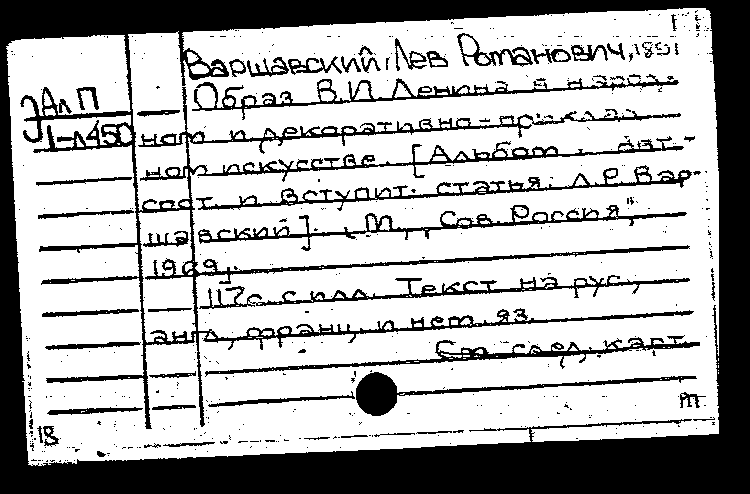 Варшавский, Лев Романович, 1891
ЗАл П
1-Л450
Образ В.И. Ленина в народ-
ном и декоративно-приклад
ном искусстве. [Альбом. Авт.-
сост. и вступит. статья: Л.Р. Вар-
шавский]. М., „Сов. Россия",
1969.
117 с. с илл. Текст на рус.,
англ., франц. и нем. яз.
См. след. карт.
т
18